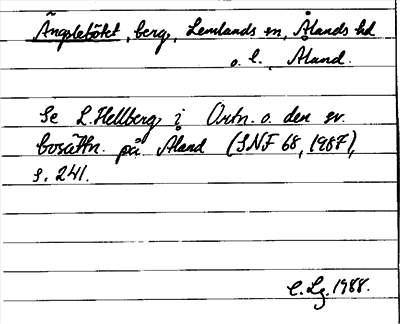 Ängsleböłet, berg, Lemlands sn, Ålands hd
o. l., Åland.
Se L. Hellberg i Ortn. o. den sv.
bosättn. på Åland (SNF 68, 1987),
s. 241.
C. Lg. 1988.